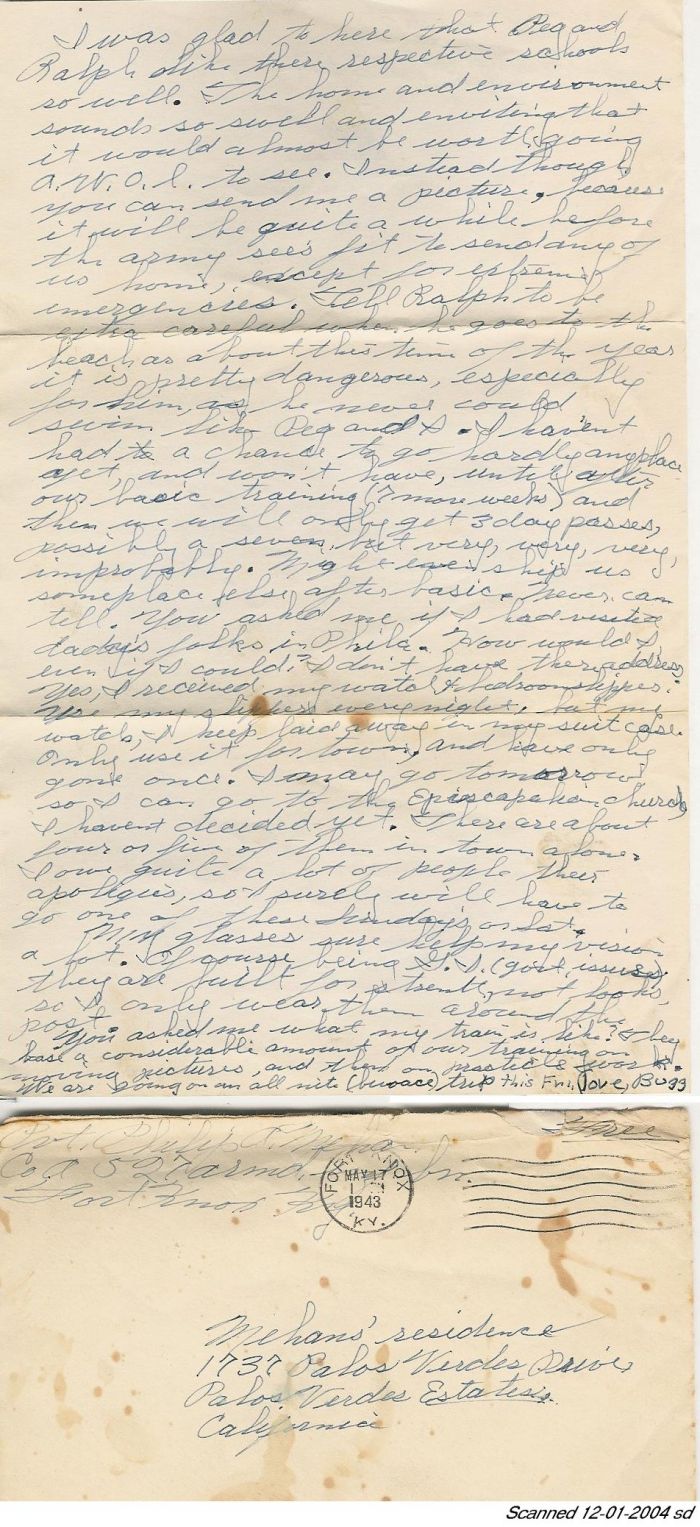 I was glad to here that Peg and
Ralph like there respective schools
so well. The home and environment
sounds so swell and enviting that
it would almost be worth going
A.W.O.L. to see. Instead though
you can send me a picture, because
it will be quite a while before
the army sees fit to send any of
us home, except for extreme
emergencies. Tell Ralph to be
extra careful when he goes to the
beach as about this time of the year
it is pretty dangerous, especially
for him, as he never could
swim like Peg and I. I haven't
had to a chance to go hardly anyplace
yet, and won't have, until after
our basic training (7 more weeks) and
then we will only get 3 day passes,
possibly a seven, but very, very, very,
improbably. Might even ship us
someplace else after basic. Never can
tell. You asked me if I had visited
dady's folks in Phila. How would I
even if I could? I don't have there address.
Yes, I received my watch & bedroom slippers.
Use my slippers every night, but my
watch, I keep laid away in my suit case.
Only use it for town, and have only
gone once. I may go tomorrow
so I can go to the Episcapalian church
I havent decided yet. There are about
four or five of them in town alone.
I owe quite a lot of people their
apoligies, so I surely will have to
go one of these Sundays or Sat.
My glasses sure help my vision
a lot. Of course being G.I. (govt issue)
they are built for strenth, not looks,
so I only wear them around the
post.
You asked me what my train is like? They
base a considerable amount of our training on
moving pictures, and then on practicle work.
We are going on an all nite (bivoace) trip this Fri. Love, Bugg
Free
Pvt. Philip
Co A 527 Armd. Bn.
Fort Knox Ky
FORT KNOX
MAY 17
1943
KY.
Mehans' residence
1737 Palos Verdes Drive
Palos Verdes Estates
California
Scanned 12-01-2004 sd